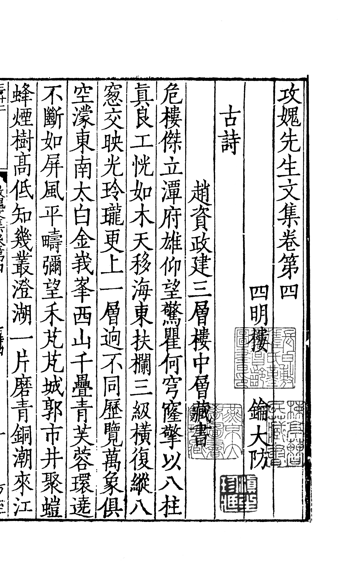 攻媿先生文集卷第四
四明樓　鑰大防
古詩
趙資政建三層樓中層藏書
危樓傑立潭府雄仰望驚瞿何穹窿擎以八柱
眞良工恍如木天移海東扶欄三級橫復縱八
窻交映光玲瓏更上一層逈不同歷覽萬象俱
空濛東南太白金峩峯西山千疊青芙蓉環遶
不斷如屏風平疇彌望禾芃芃城郭市井聚螘
蜂煙樹髙低知幾叢澄湖一片磨青銅潮來江